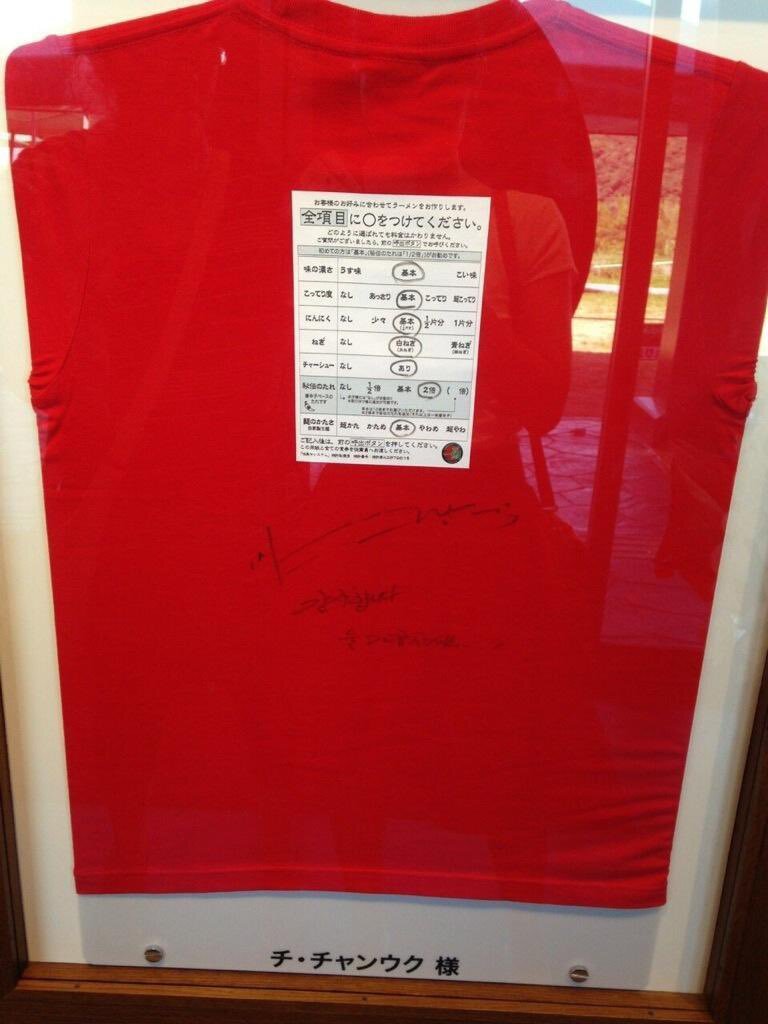 お客様のお好みに合わせてラーメンをお作りします。
全項目に○をつけてください。
どのように選ばれても料金はかわりません。
ご質問がございましたら、前の呼出ボタンでお呼びください。
初めての方は「基本」(秘伝のたれは「1/2倍」)がお勧めです。
味の濃さ うす味 基本 こい味
こってり度 なし あっさり 基本 こってり 超こってり
にんにく なし 少々 基本 1/2片分 1片分
ねぎ なし 白ねぎ 青ねぎ
チャーシュー なし あり
秘伝のたれ なし 1/2倍 基本 2倍 ( 倍)
唐辛子ベースの
たれです
麺のかたさ 超かた かため 基本 やわめ 超やわ
ご記入後は、前の呼出ボタンを押してください。
감사합니다
チ・チャンウク 様